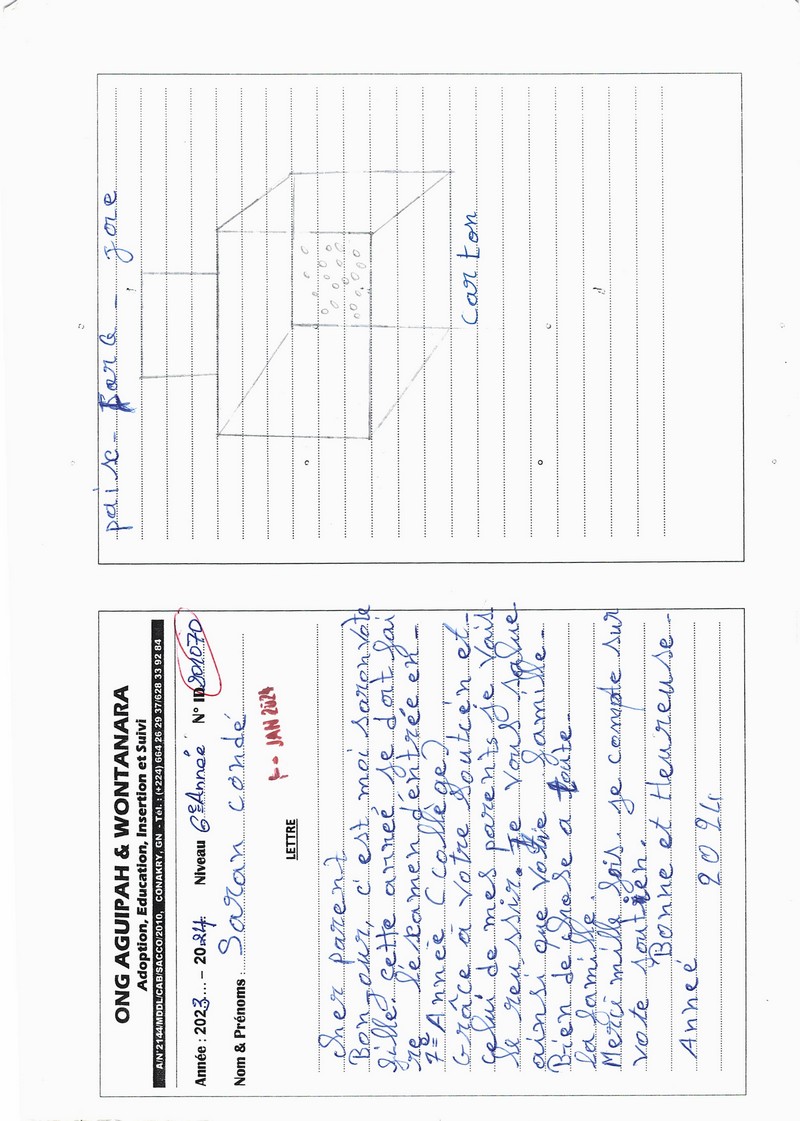 ONG AGUIPAH & WONTANARA
Adoption, Education, Insertion et Suivi
A/N°2144/MDDL/CAB/SACCO/2010, CONAKRY, GN - Tél. : (+224) 664 26 29 37/628 33 92 84
Année : 2023.... – 2024 Niveau 6ᵉ Année N° ID 901070
Nom & Prénoms : Saran condé
JAN 2024
LETTRE
cher parent
Bonjour, c'est moi saran vote
fille. cette année je doit fai
re l'éxamen d'entrée en-
7ᵉ Année (collège)
Grâce a votre soutien et-
celui de mes parents je vais
le reussir. Je vous salue
ainsi que votre famille-
Bien de chose a toute-
la famille.
Merci mille fois. je compte sur
vote soutien.
Bonne et Heureuse-
Année 2024
carton